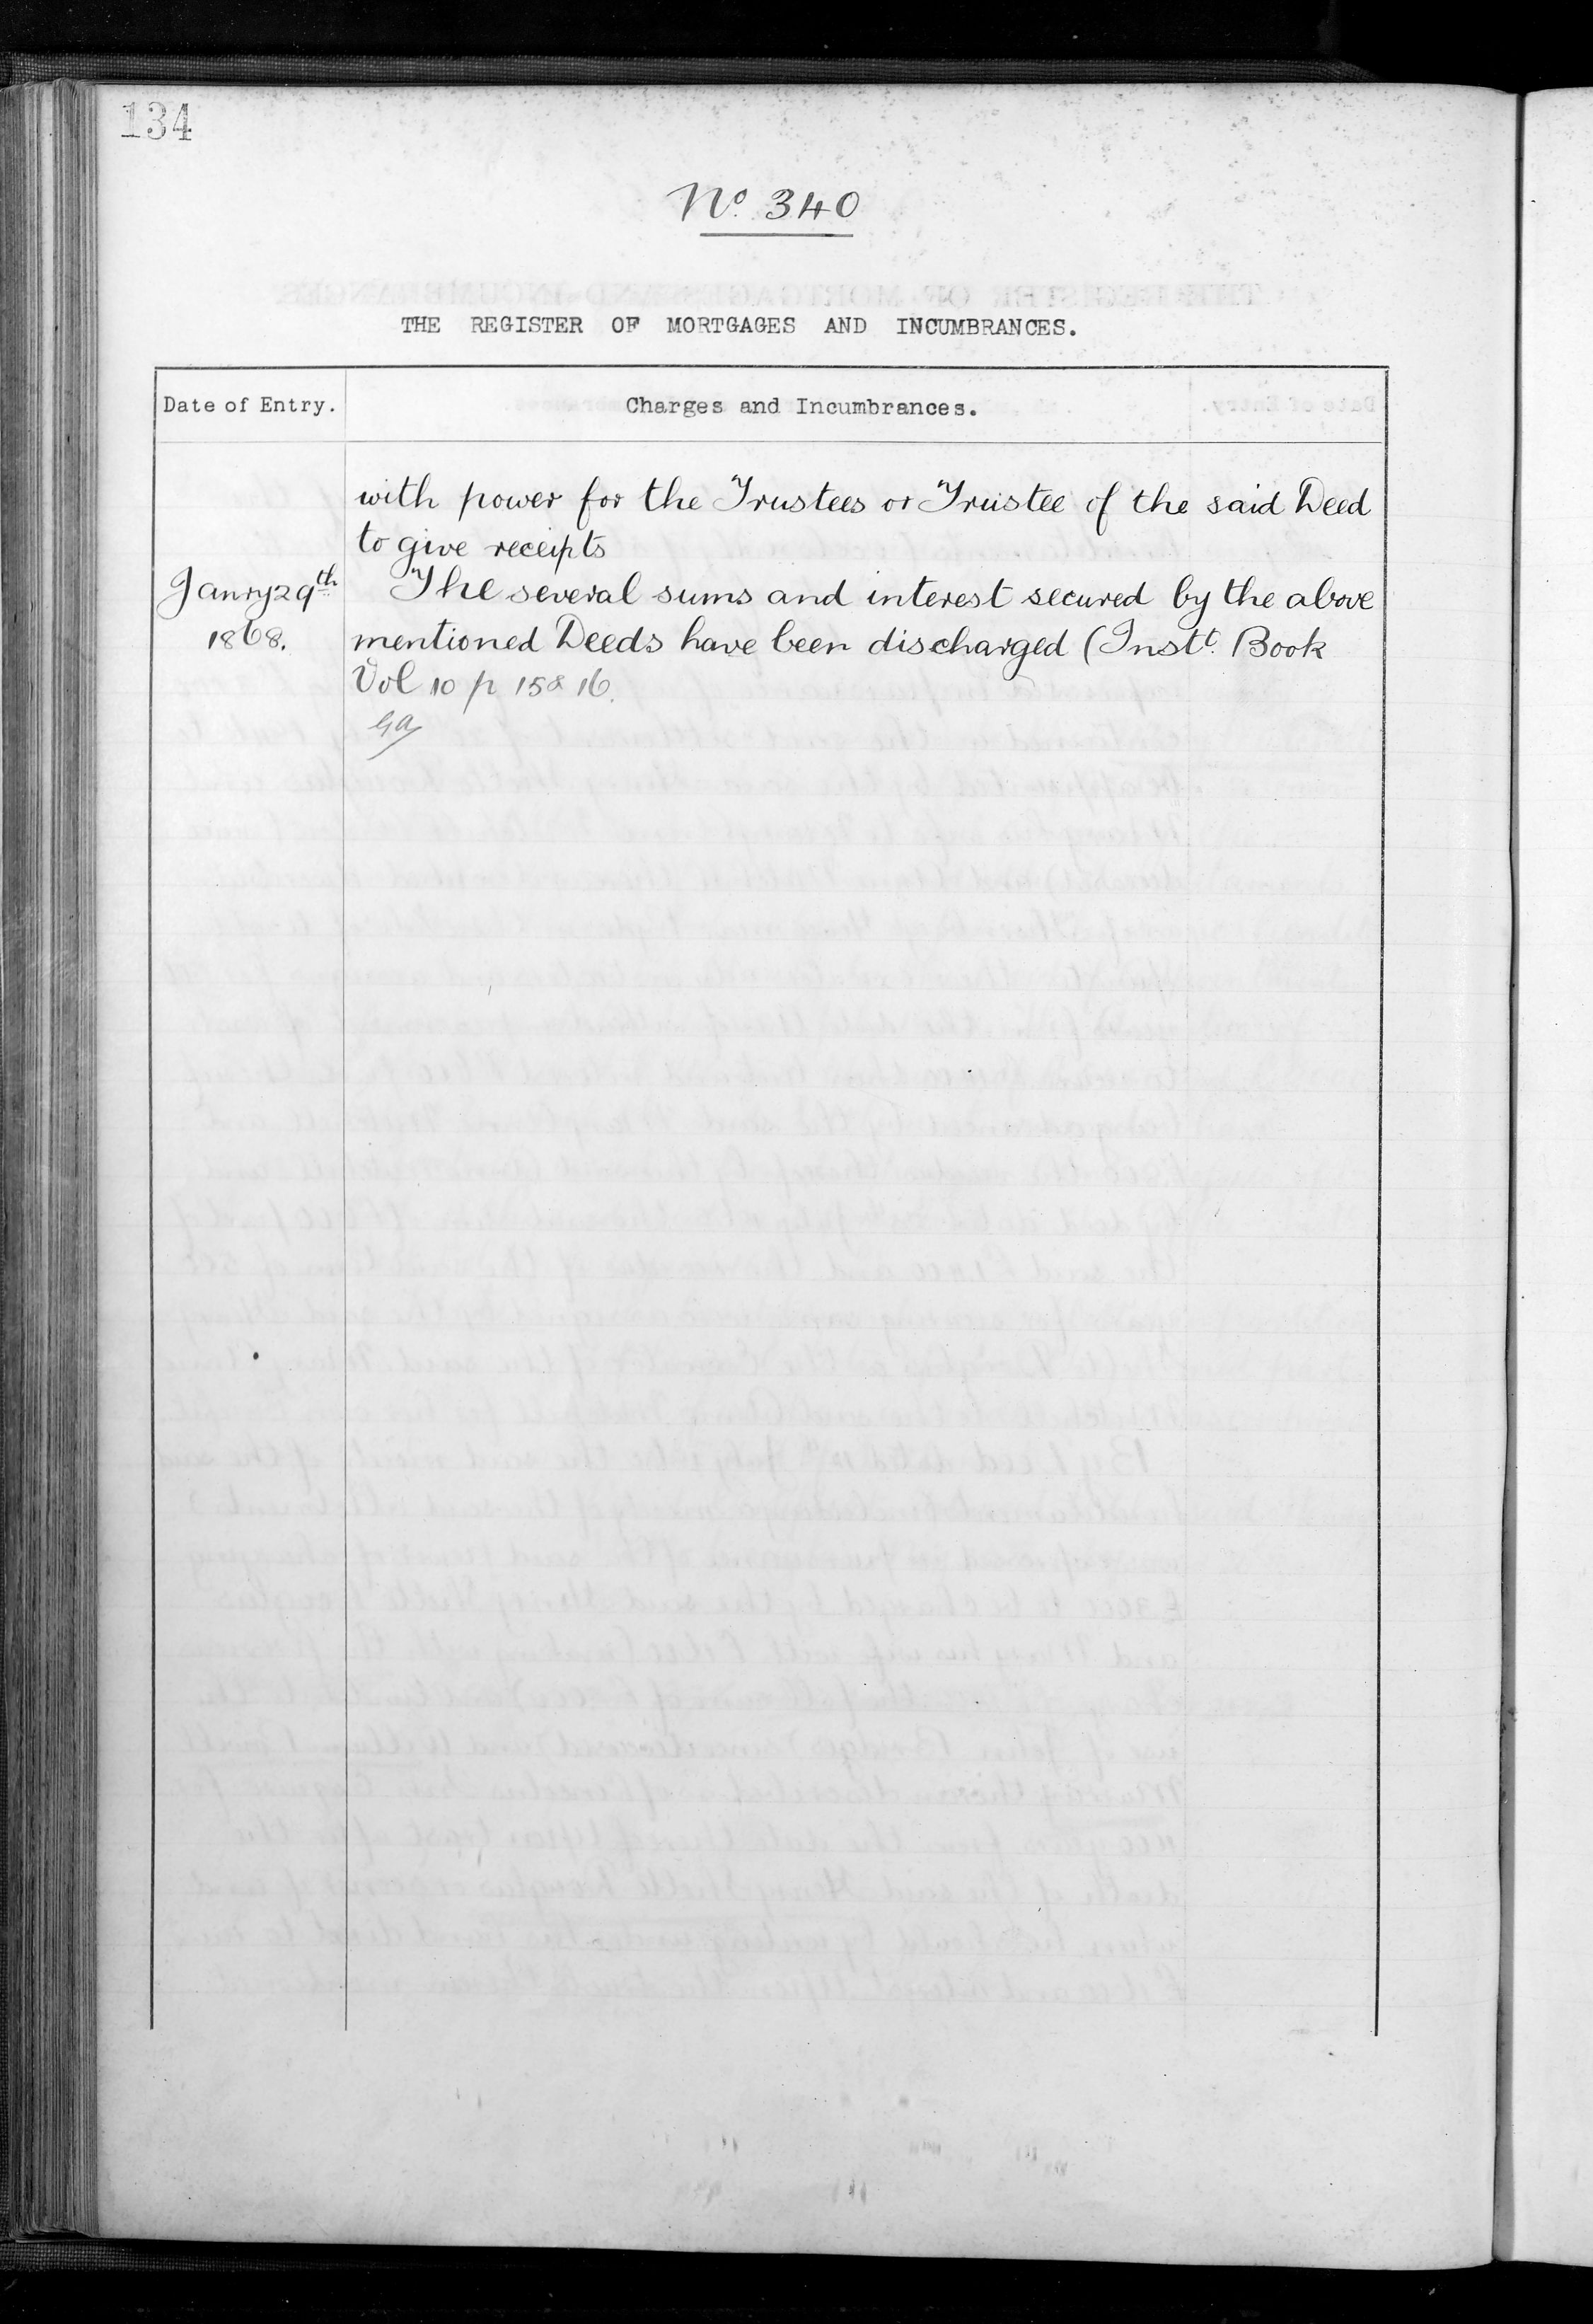 134
No. 340
THE REGISTER OF MORTGAGES AND INCUMBRANCES.
Date of Entry. Charges and Incumbrances.
with power for the Trustees or Trustee of the said Deed
to give receipts
Janry 29th The several sums and interest secured by the above
1868. mentioned Deeds have been discharged (Instt. Book
Vol 10 p 15 & 16.